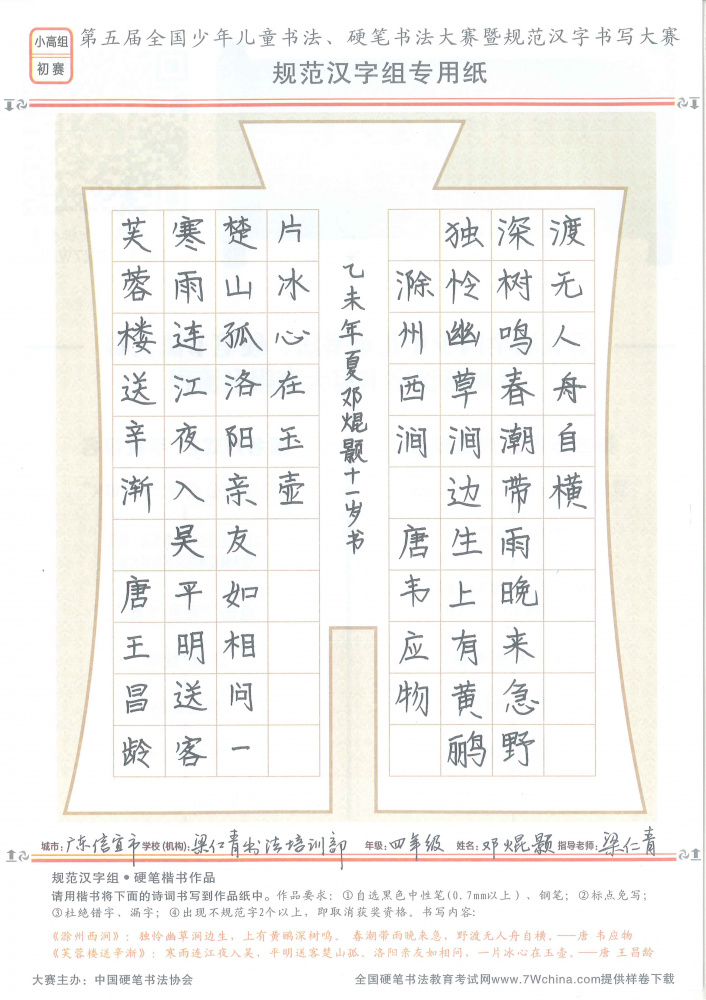 小高组
初赛
第五届全国少年儿童书法、硬笔书法大赛暨规范汉字书写大赛
规范汉字组专用纸
芙蓉楼送辛渐 唐王昌龄
寒雨连江夜入吴平明送客
楚山孤洛阳亲友如相问一
片冰心在玉壶
乙未年夏邓焜颢十一岁书
滁州西涧 唐韦应物
独怜幽草涧边生上有黄鹂
深树鸣春潮带雨晚来急野
渡无人舟自横
城市:广东信宜市 学校(机构):梁仁青书法培训部 年级:四年级 姓名:邓焜颢 指导老师:梁仁青
规范汉字组·硬笔楷书作品
请用楷书将下面的诗词书写到作品纸中。作品要求：①自选黑色中性笔(0.7mm以上)、钢笔；②标点免写；
③杜绝错字、漏字；④出现不规范字2个以上，即取消获奖资格。书写内容：
《滁州西涧》：独怜幽草涧边生，上有黄鹂深树鸣。春潮带雨晚来急，野渡无人舟自横。——唐 韦应物
《芙蓉楼送辛渐》：寒雨连江夜入吴，平明送客楚山孤。洛阳亲友如相问，一片冰心在玉壶。——唐 王昌龄
大赛主办：中国硬笔书法协会 全国硬笔书法教育考试网www.7Wchina.com提供样卷下载